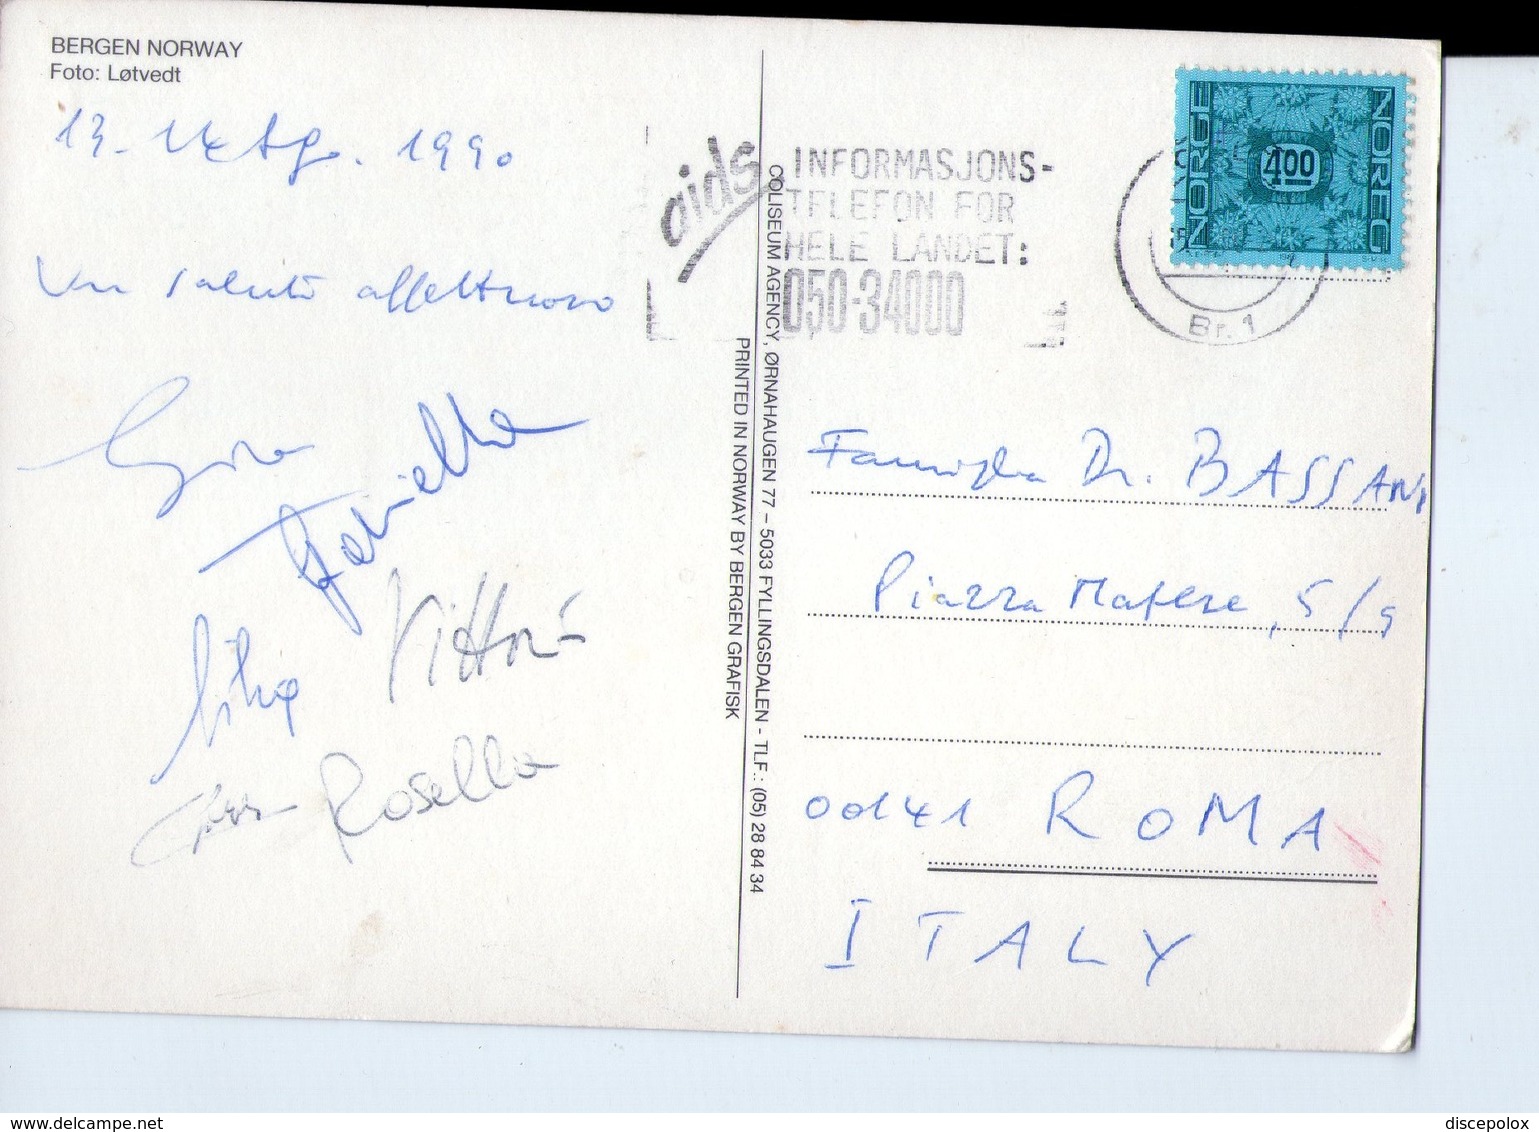 BERGEN NORWAY
Foto: Løtvedt
13-14 Ag. 1990
Un saluto affettuoso
Fabiella
Vittorio
Rosella
COLISEUM AGENCY, ØRNAHAUGEN 77 – 5033 FYLLINGSDALEN - TLF.: (05) 28 84 34
PRINTED IN NORWAY BY BERGEN GRAFISK
aids
INFORMASJONS-
TELEFON FOR
HELE LANDET:
050-34000
Br. 1
NORGE
4.00
NOREG
Famiglia Dr. BASSANI
Piazza Matese, 5/9
00141 ROMA
ITALY
delcampe.net
discepolox